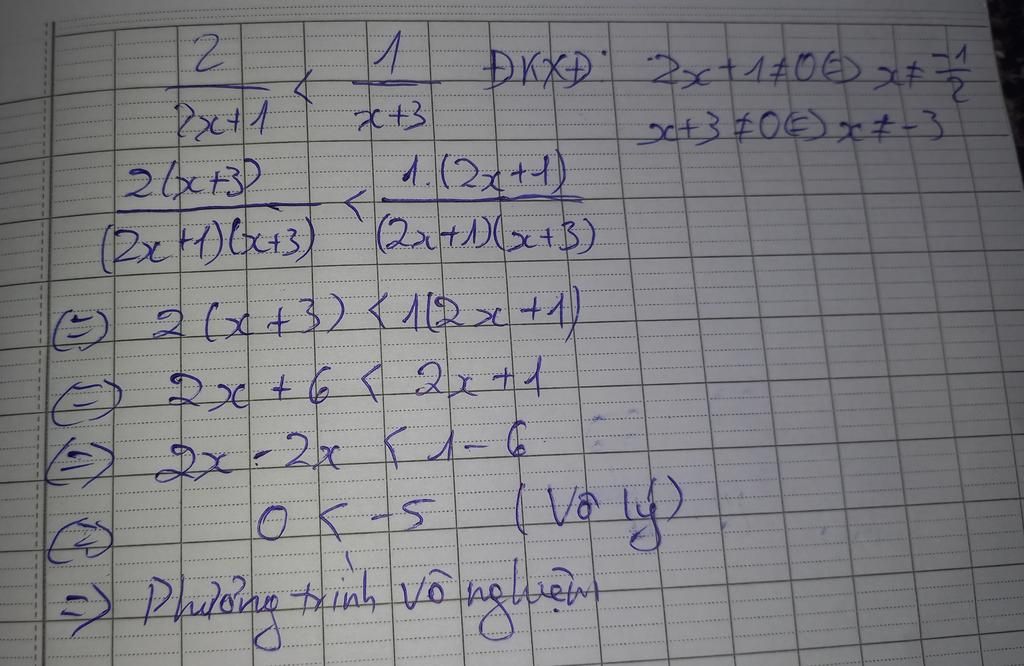 2/(2x+1) < 1/(x+3) ĐKXĐ: 2x+1≠0 ⇔ x≠ -1/2
x+3≠0 ⇔ x≠-3
2(x+3)/((2x+1)(x+3)) < 1.(2x+1)/((2x+1)(x+3))
⇔ 2(x+3) < 1(2x+1)
⇔ 2x + 6 < 2x+1
⇔ 2x - 2x < 1 - 6
⇔ 0 < -5 (Vô lý)
=> Phương trình vô nghiệm